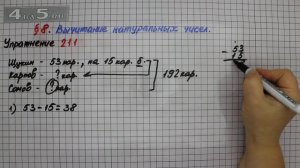 4 5
§8. Вычитание натуральных чисел.
Упражнение 211
Щукин – 53 кар., на 15 кар. б.
Карпов – ? кар.
Сомов – ? кар.
192 кар.
1) 53-15=38
- 53
15